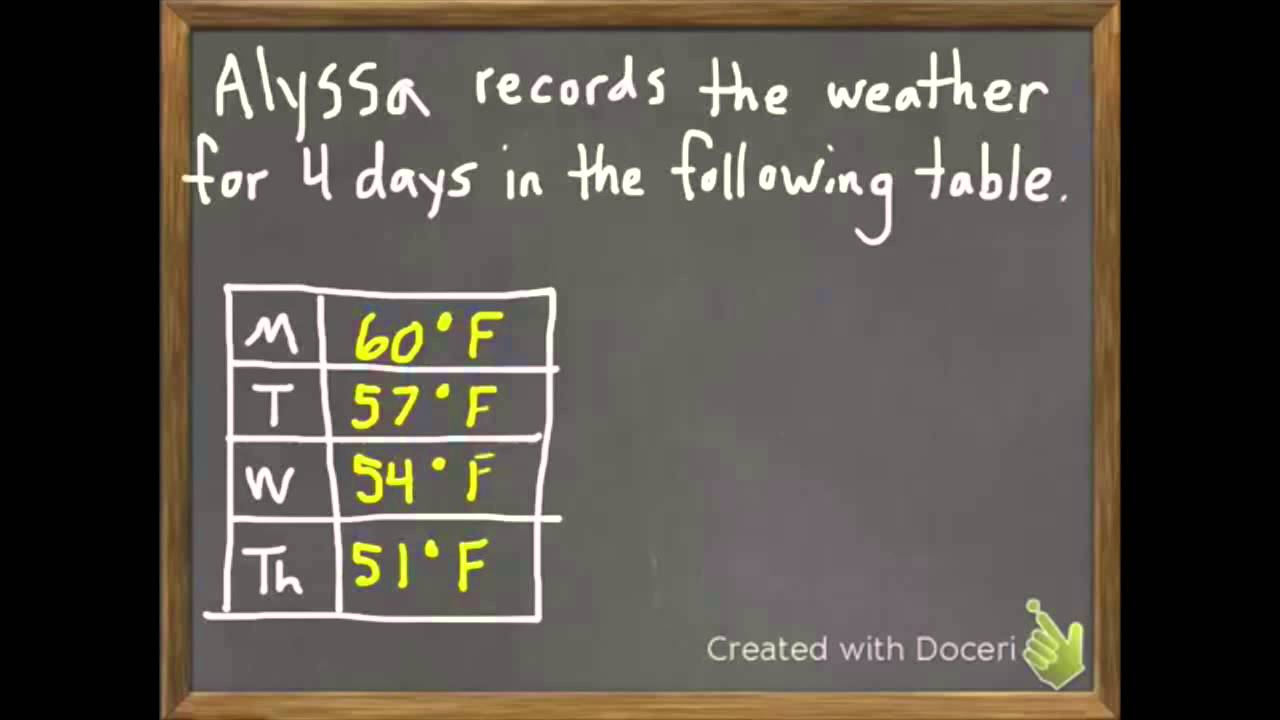 Alyssa records the weather
for 4 days in the following table.
M 60°F
T 57°F
W 54°F
Th 51°F
Created with Doceri